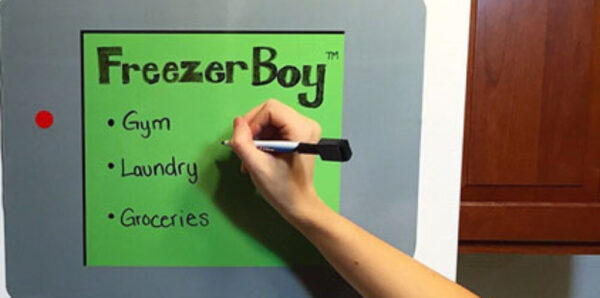 FreezerBoy™
• Gym
• Laundry
• Groceries